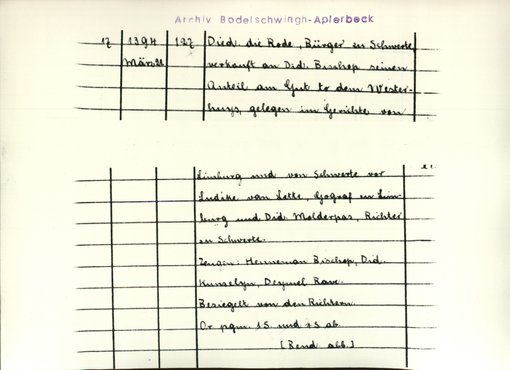 Archiv Bodelschwingh-Aplerbeck
17 1394 127 Died. die Rode, Bürger in Schwerte
März 21 verkauft an Did. Bischop seinen
Anteil am Gut to dem Wester-
huys, gelegen im Gerichte von
Limburg und von Schwerte vor
Ludike van Lette, Gograf in Lim-
burg und Did. Molderpas, Richter
in Schwerte.
Zeugen: Henneman Bischop, Did.
Deymel Rave.
Besiegelt von den Richtern.
Or. pgm. 1 S. und ab.
[Bend abb.]